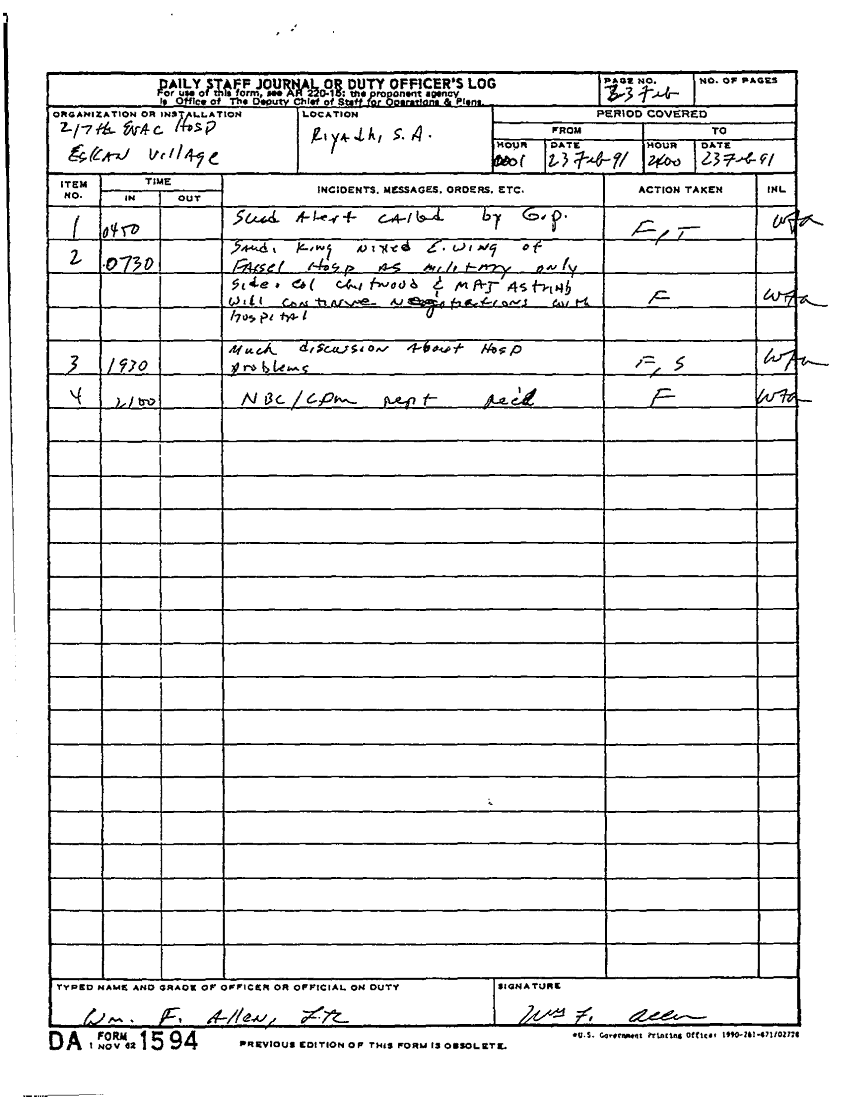 DAILY STAFF JOURNAL OR DUTY OFFICER'S LOG
For use of this form, see AR 220-15; the proponent agency
is Office of The Deputy Chief of Staff for Operations & Plans.
PAGE NO.
23 Feb
NO. OF PAGES
ORGANIZATION OR INSTALLATION
217th EVAC Hosp
EsKAN Village
LOCATION
Riyadh, S.A.
PERIOD COVERED
FROM
TO
HOUR
DATE
HOUR
DATE
0001
23 Feb 91
2400
23 Feb 91
ITEM NO.
TIME
IN
OUT
INCIDENTS, MESSAGES, ORDERS, ETC.
ACTION TAKEN
INL
1 0450 Scud Alert called by Gp. F, T WFA
2 0730 Saudi King nixed E. wing of
Faisel Hosp as military only
side. Col Chitwood & MAJ Astrub
will continue negotiations with F WFA
hospital
Much discussion About Hosp
3 1930 problems F, S WFA
4 2100 NBC/CDM rept rec'd F WFA
TYPED NAME AND GRADE OF OFFICER OR OFFICIAL ON DUTY
Wm. F. Allen,
SIGNATURE
Wm F. Allen
DA FORM 1594
1 NOV 62
PREVIOUS EDITION OF THIS FORM IS OBSOLETE.
*U.S. Government Printing Office: 1990-261-871/02728